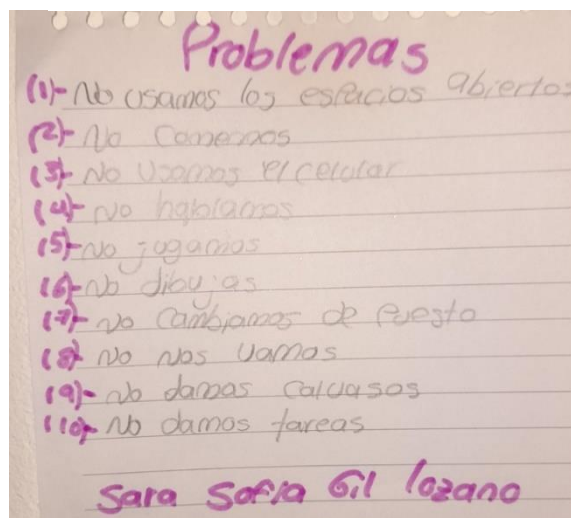 Problemas
(1)- No usamos los espacios abiertos
(2)- No Comemos
(3)- No Usamos el celular
(4)- No hablamos
(5)- No jugamos
(6)- No dibujas
(7)- No Cambiamos de Puesto
(8)- No Nos Vamos
(9)- No damos Calvasos
(10)- No damos tareas
Sara Sofia Gil lozano